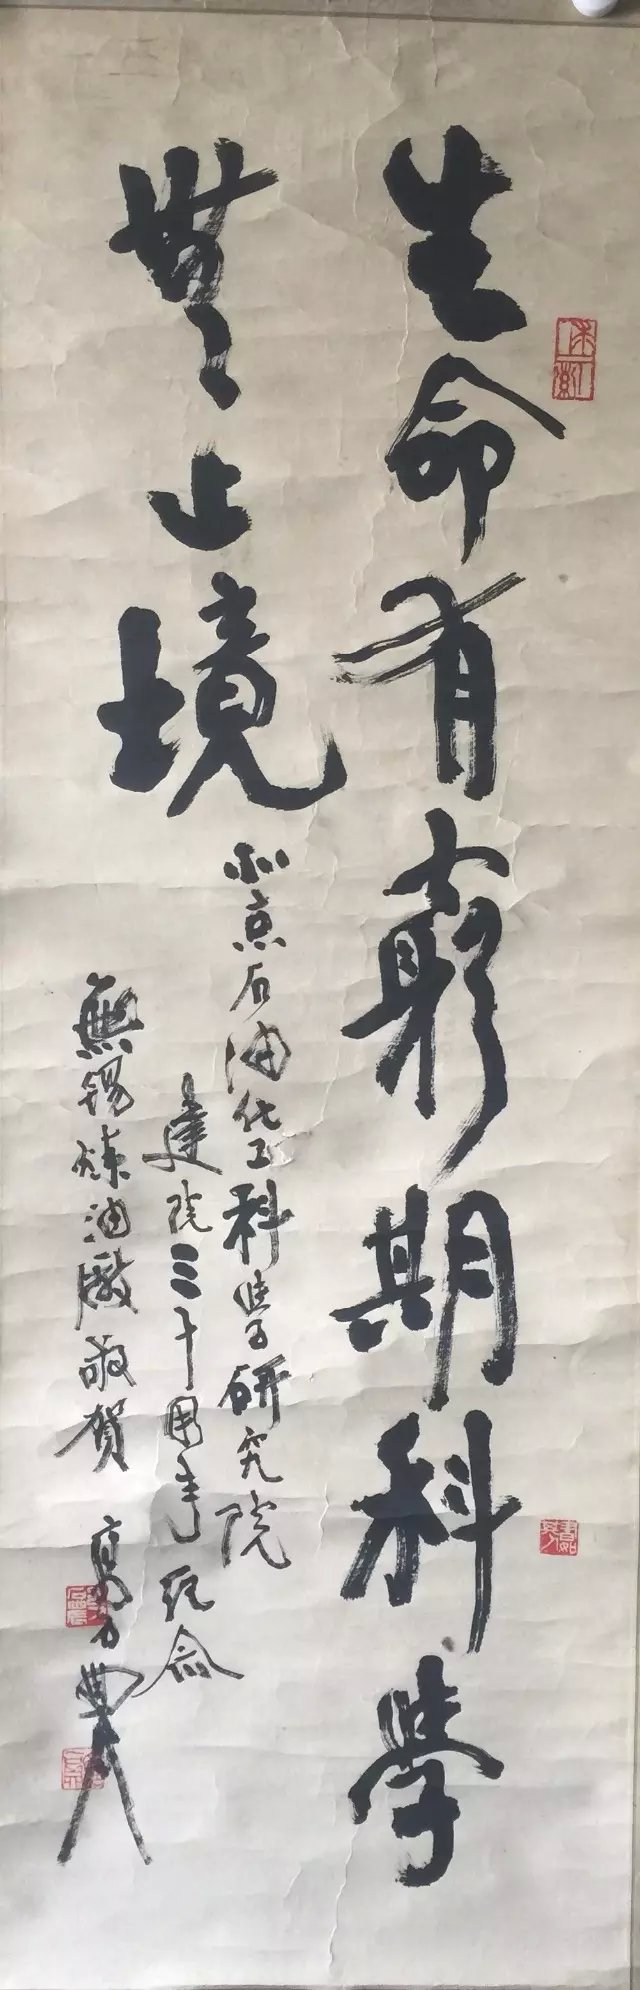 生命有窮期科學
無止境
北京石油化工科學研究院
建院三十周年纪念
無锡煉油廠敬贺